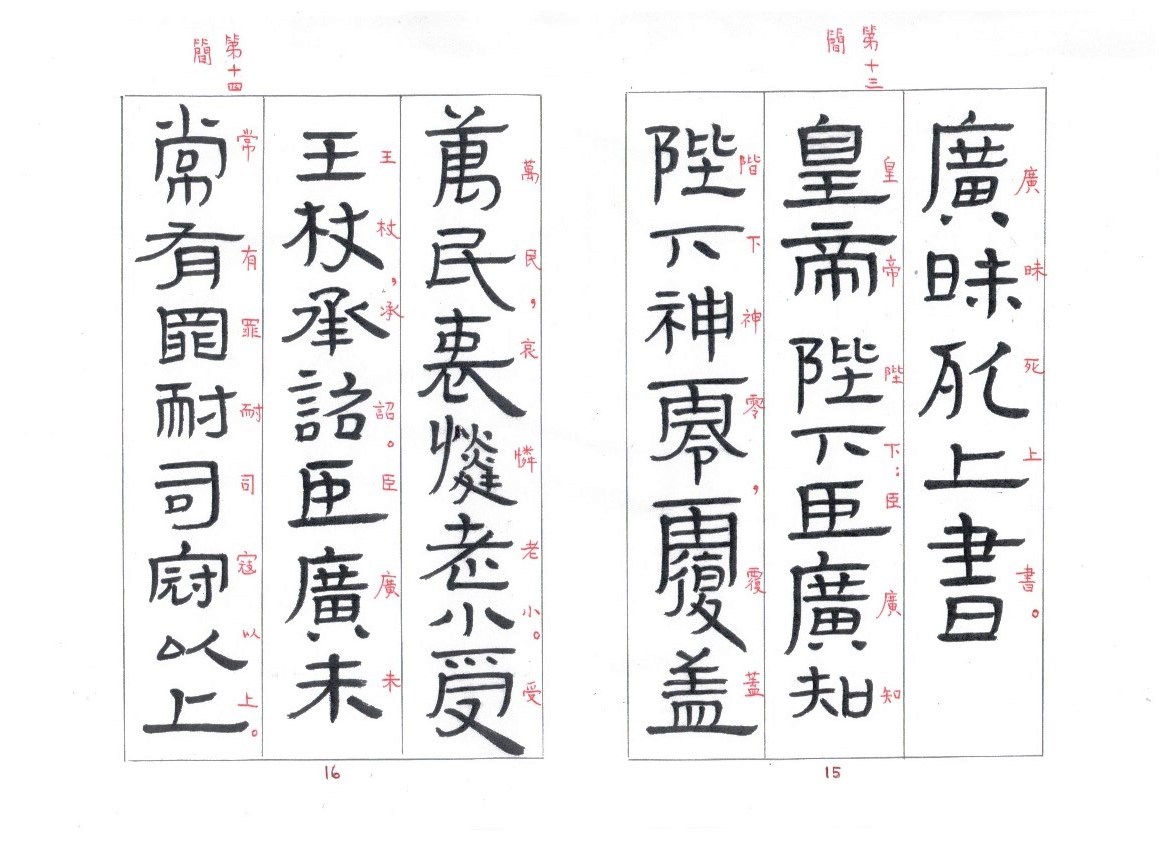 第十三
簡
廣昧死上書。
廣昧死上書
皇帝陛下：臣廣知
皇帝陛下臣廣知
階下神零，覆蓋
陛下神零覆盖
15
第十四
簡
萬民，哀憐老小。受
萬民哀憐老小受
王杖，承詔。臣廣未
王杖承詔臣廣未
常有罪耐司寇以上。
常有罪耐司寇以上
16